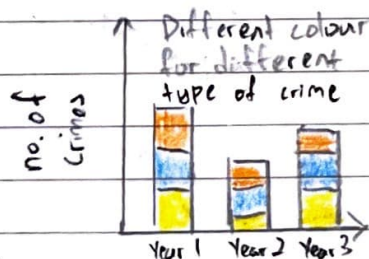 Different colour
for different
type of crime
no. of
crimes
Year 1 Year 2 Year 3